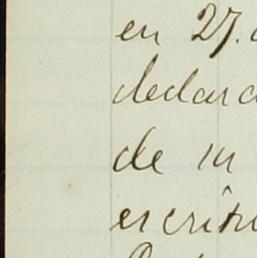 en 27.
declara
de in
escritu